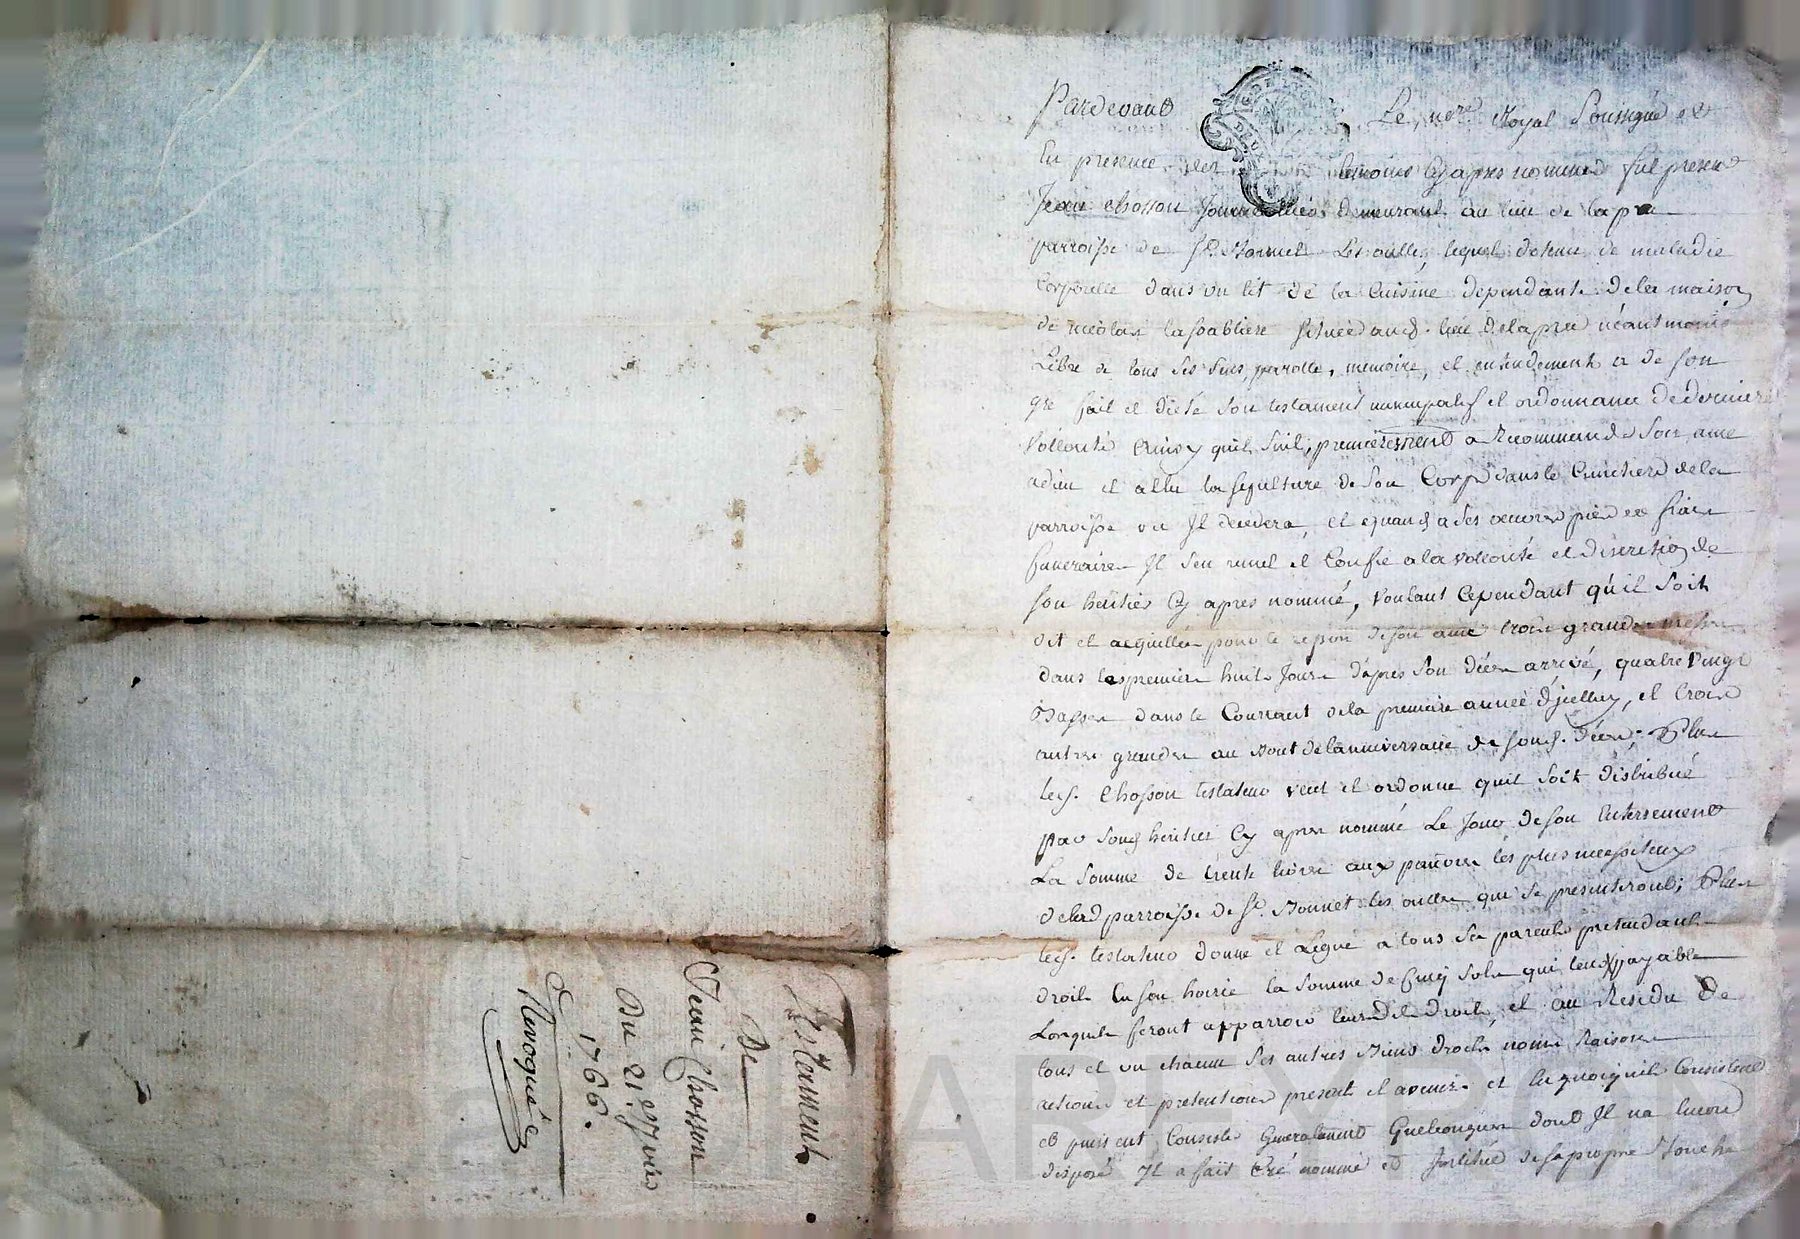 Pardevant Le nore Royal Soussigné et
En presence des temoins Cy apres nommés fut present
Jean Chosson Journallier demeurant au lieu de la pra
parroisse de St. Bonnet Les oulles, lequel detenu de maladie
Corporelle dans un lit de la Cuisine dependante de la maison
de nicolas lasabliere scituée aud. lieu de la pra néantmoins
Libre de tous ses sens, parolle, memoire, et entendement a de son
gré fait et dicté son testament nuncupatif et ordonnance de derniere
Vollonté Ainsy quil suit, premierement a Recommandé son ame
adieu et a ellu la sepulture de son Corps dans le Cimetiere de la
parroisse ou Il decedera, et quand a ses oeuvres pies et frais
funeraires Il s'en remet et Confie a la vollonté et discretion de
son heritier Cy apres nommé, voulant Cependant qu'il soit
dit et acquittée pour le repos de son ame trois grandes messes
dans les premiers huit Jours d'apres son décès arrivé, quatre Vingt
Basses dans le Courrant de la premiere année d'jcelluy, et trois
autres grandes au bout de l'anniversaire de sond. décès; Plus
led. Chosson testateur veut et ordonne quil soit distribué
par sond heritier Cy apres nommé Le Jour de son Enterrement
La somme de trente livres aux pauvres les plus necessiteux
de lad parroisse de St. Bonnet les oulles qui se presenteront; Plus
led. testateur donne et Legue a tous ses parents pretendants
droit En son hoirie la somme de Cinq sols payable
Lorquils feront apparroir leursd. droits, et au Residu de
tous et un chacun ses autres Biens droits noms Raisons
actions et pretentions presents et avenir et En quoy quils Consistent
et puissent Consister Generalement Quelconques dont Il na Encore
disposé Il a fait Créé nommé et Institué de sa propre Bouche
Testament
De
Jean Chosson
Du 21. 
1766.
Revoqué